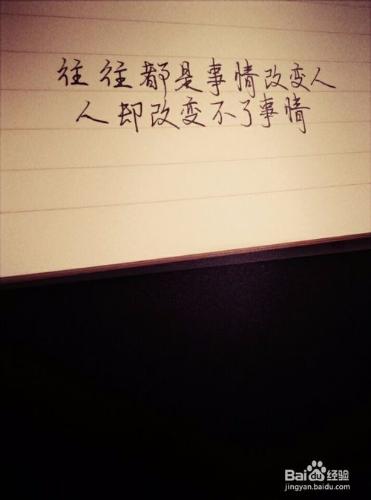 往往都是事情改变人
人却改变不了事情
Baidu经验
jingyan.baidu.com